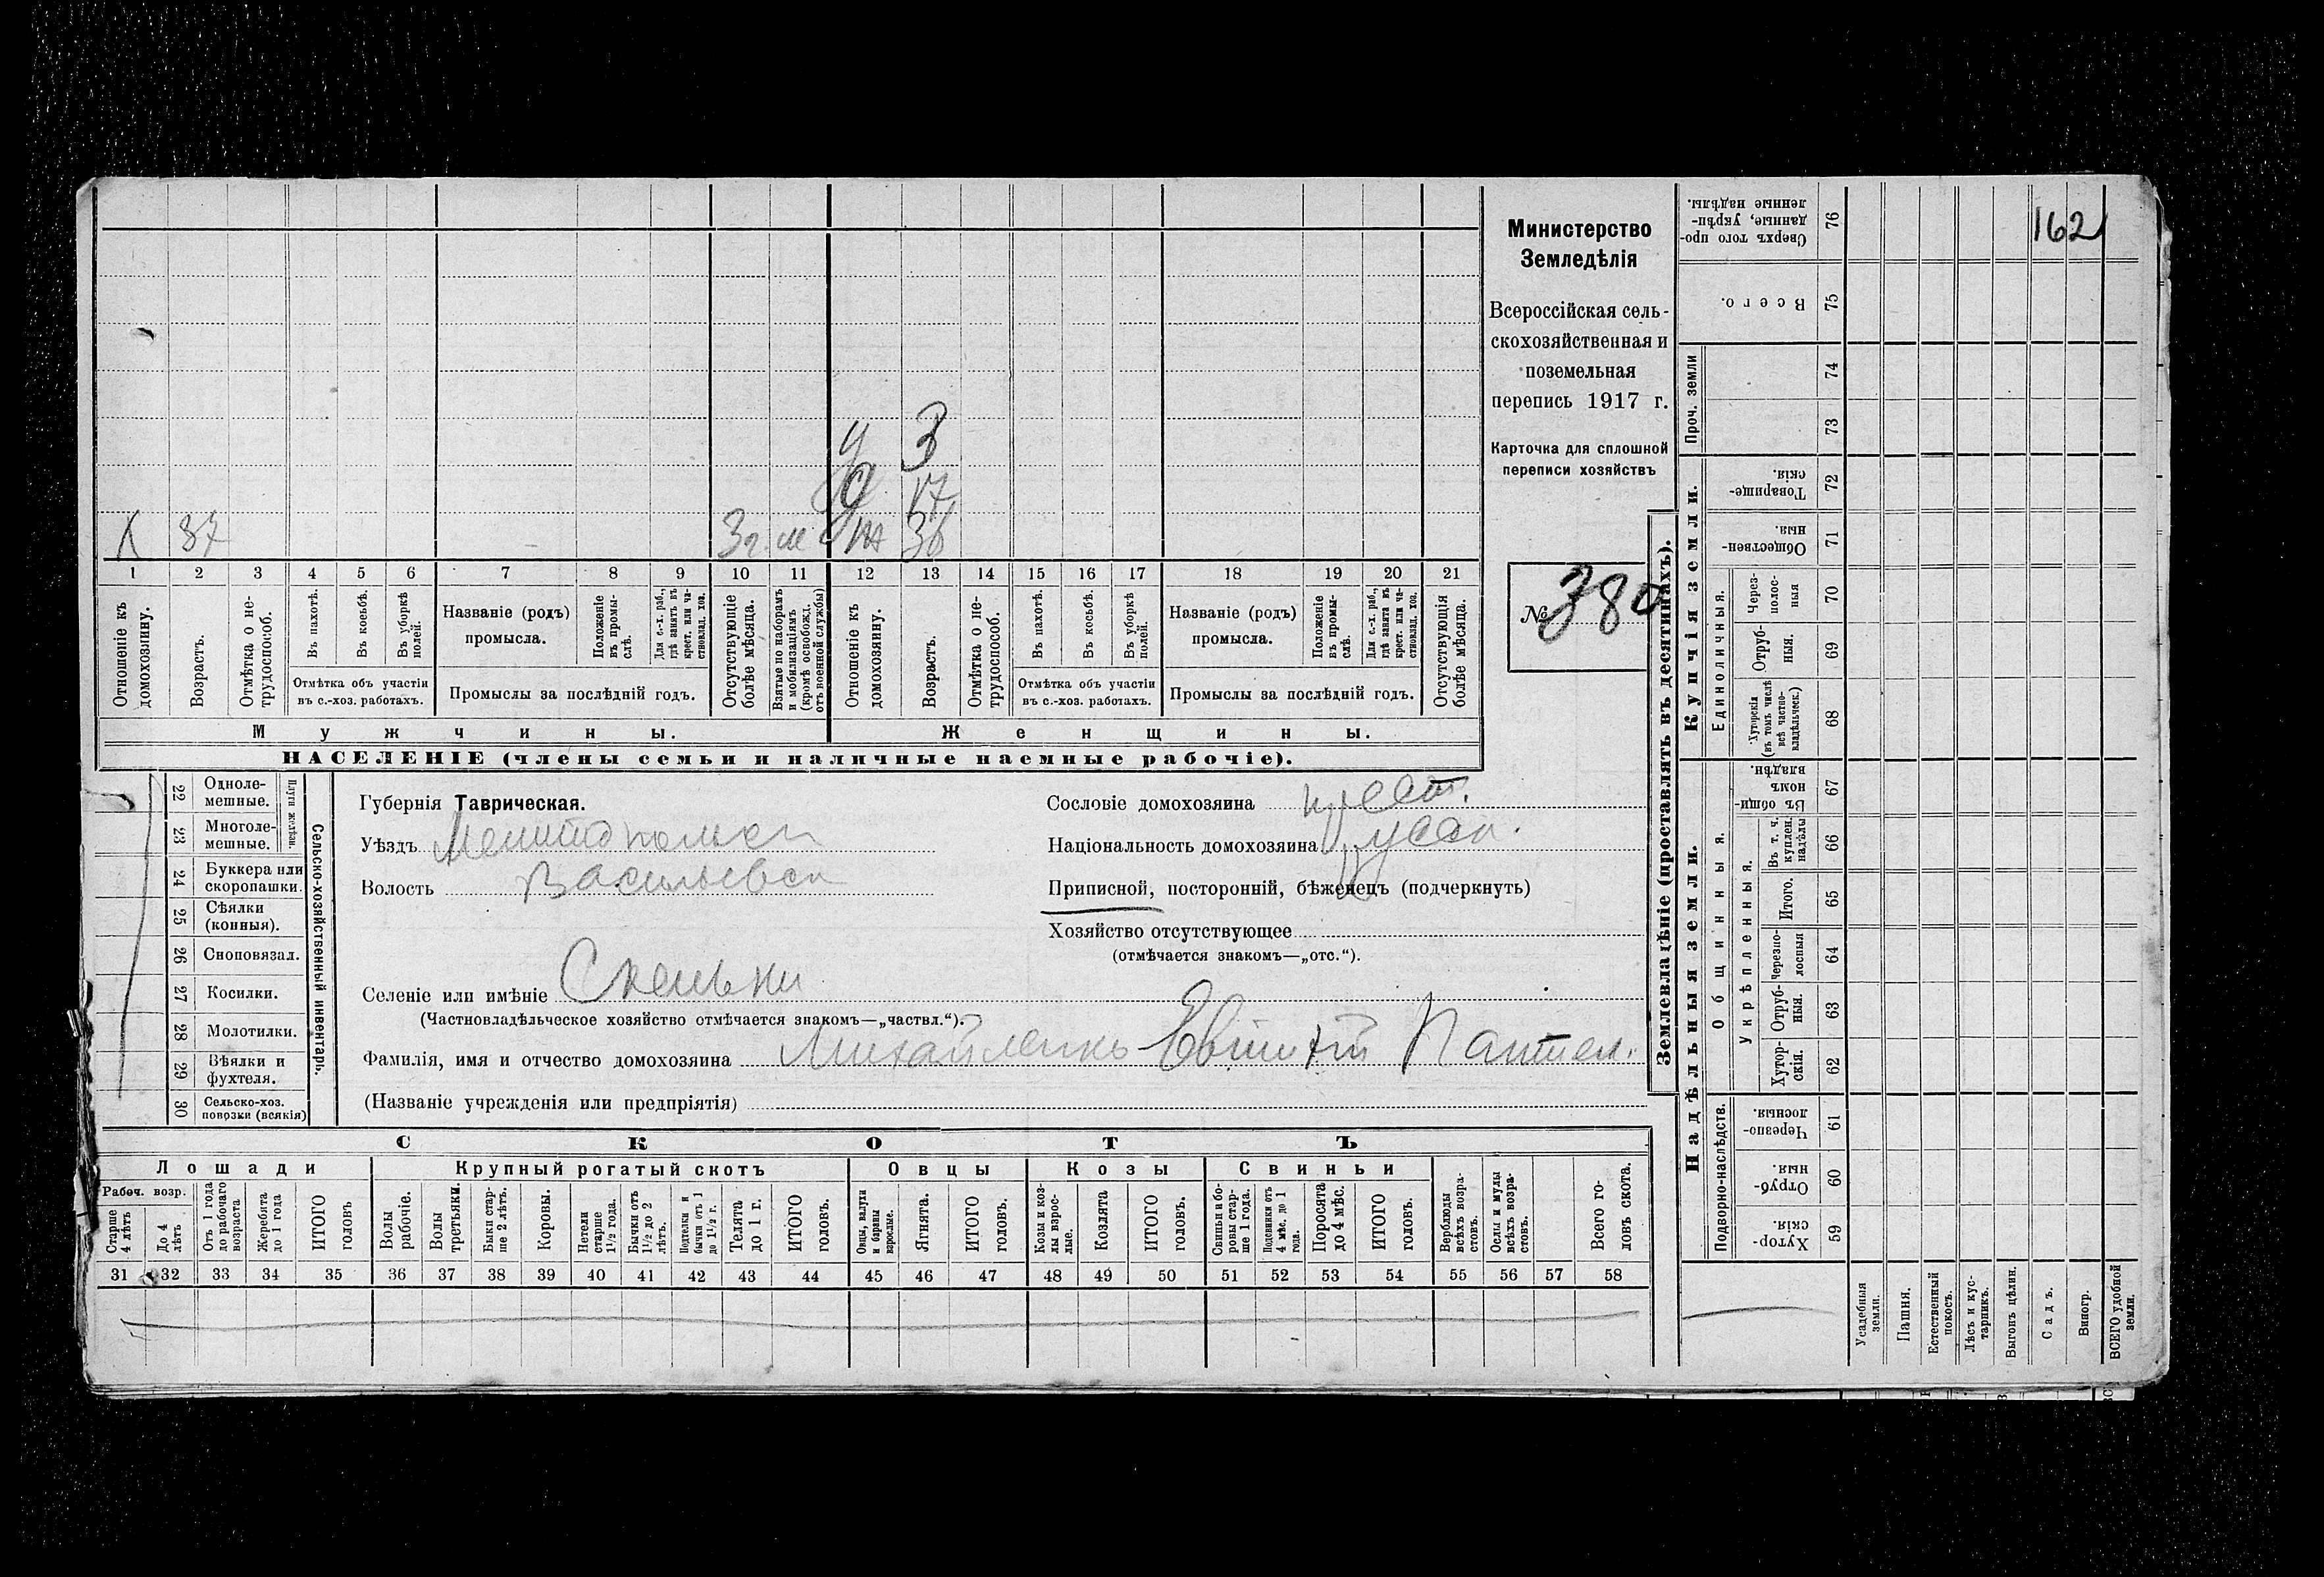 162
Министерство
Земледѣлія
Всероссійская сель-
скохозяйственная и
поземельная
перепись 1917 г.
Карточка для сплошной
переписи хозяйствъ
№ 380
3
17
Х 37 3 г. м 36
1 2 3 4 5 6 7 8 9 10 11 12 13 14 15 16 17 18 19 20 21
Отношеніе къ домохозяину.
Возрастъ.
Отмѣтка о не-трудоспособ.
Въ пахотѣ.
Въ косьбѣ.
Въ уборкѣ полей.
Отмѣтка объ участіи
въ с.-хоз. работахъ.
Названіе (родъ)
промысла.
Положеніе въ промы-слѣ.
Для с.-х. раб., гдѣ занятъ въ крест. или ча-стновлад. хоз.
Промыслы за послѣдній годъ.
Отсутствующіе болѣе мѣсяца.
Взятые по наборамъ и мобилизаціямъ (кромѣ освобожд. отъ военной службы)
Отношеніе къ домохозяину.
Возрастъ.
Отмѣтка о не-трудоспособ.
Въ пахотѣ.
Въ косьбѣ.
Въ уборкѣ полей.
Отмѣтка объ участіи
въ с.-хоз. работахъ.
Названіе (родъ)
промысла.
Положеніе въ промы-слѣ.
Для с.-х. раб., гдѣ занята въ крест. или ча-стновлад. хоз.
Промыслы за послѣдній годъ.
Отсутствующія болѣе мѣсяца.
Мужчины. Женщины.
НАСЕЛЕНІЕ (члены семьи и наличные наемные рабочіе).
Сельско-хозяйственный инвентарь.
Плуги желѣзн.
22 Одноле-мешные.
23 Многоле-мешные.
24 Буккера или скоропашки.
25 Сѣялки (конныя).
26 Сноповязал.
27 Косилки.
28 Молотилки.
29 Вѣялки и фухтеля.
30 Сельско-хоз. повозки (всякія)
Губернія Таврическая.
Уѣздъ Мелитопольск
Волость Васильевск
Сословіе домохозяина крест.
Національность домохозяина русск.
Приписной, посторонній, бѣженецъ (подчеркнуть)
Хозяйство отсутствующее
(отмѣчается знакомъ—„отс.“).
Селеніе или имѣніе Скельки
(Частновладѣльческое хозяйство отмѣчается знакомъ—„частвл.“).
Фамилія, имя и отчество домохозяина Михайленко Пантел.
(Названіе учрежденія или предпріятія)
СКОТЪ
Лошади Крупный рогатый скотъ Овцы Козы Свиньи
Рабоч. возр.
Старше 4 лѣтъ
До 4 лѣтъ
Отъ 1 года до рабочаго возраста
Жеребята до 1 года
ИТОГО головъ
Волы рабочіе.
Волы третьяки.
Быки стар-ше 2 лѣтъ.
Коровы.
Нетели старше 1 1/2 года.
Бычки отъ 1 1/2 до 2 лѣтъ.
Подтелки и бычки отъ 1 до 1 1/2 г.
Телята до 1 г.
ИТОГО головъ.
Овцы, валухи и бараны взрослые.
Ягнята.
ИТОГО головъ.
Козы и коз-лы взрос-лые.
Козлята
ИТОГО головъ.
Свиньи и бо-ровы стар-ше 1 года.
Подсвинки отъ 4 мѣс. до 1 года.
Поросята до 4 мѣс.
ИТОГО головъ.
Верблюды всѣхъ возра-стовъ.
Ослы и мулы всѣхъ возра-стовъ.
Всего го-ловъ скота.
31 32 33 34 35 36 37 38 39 40 41 42 43 44 45 46 47 48 49 50 51 52 53 54 55 56 57 58
Землевладѣніе (проставлять въ десятинахъ).
Купчія земли.
Надѣльныя земли.
Сверхъ того про-данные, укрѣп-ленные надѣлы. 76
Всего. 75
Проч. земли 74 73
Товарище-скія. 72
Обществен-ныя. 71
Единоличныя.
Через-полос-ныя 70
Отруб-ныя. 69
Хуторскія (въ томъ числѣ всѣ частно-владѣльческ.) 68
Общинныя.
Въ общин-номъ владѣн. 67
Укрѣпленныя.
Въ т. ч. куплен. надѣлы 66
Итого. 65
Черезпо-лосныя 64
Отруб-ныя. 63
Хутор-скія. 62
Подворно-наслѣдств.
Черезпо-лосныя. 61
Отруб-ныя. 60
Хутор-скія. 59
Усадебныя земли.
Пашня.
Естественный покосъ.
Лѣсъ и кус-тарникъ.
Выгонъ цѣлин.
Садъ.
Виногр.
ВСЕГО удобной земли.